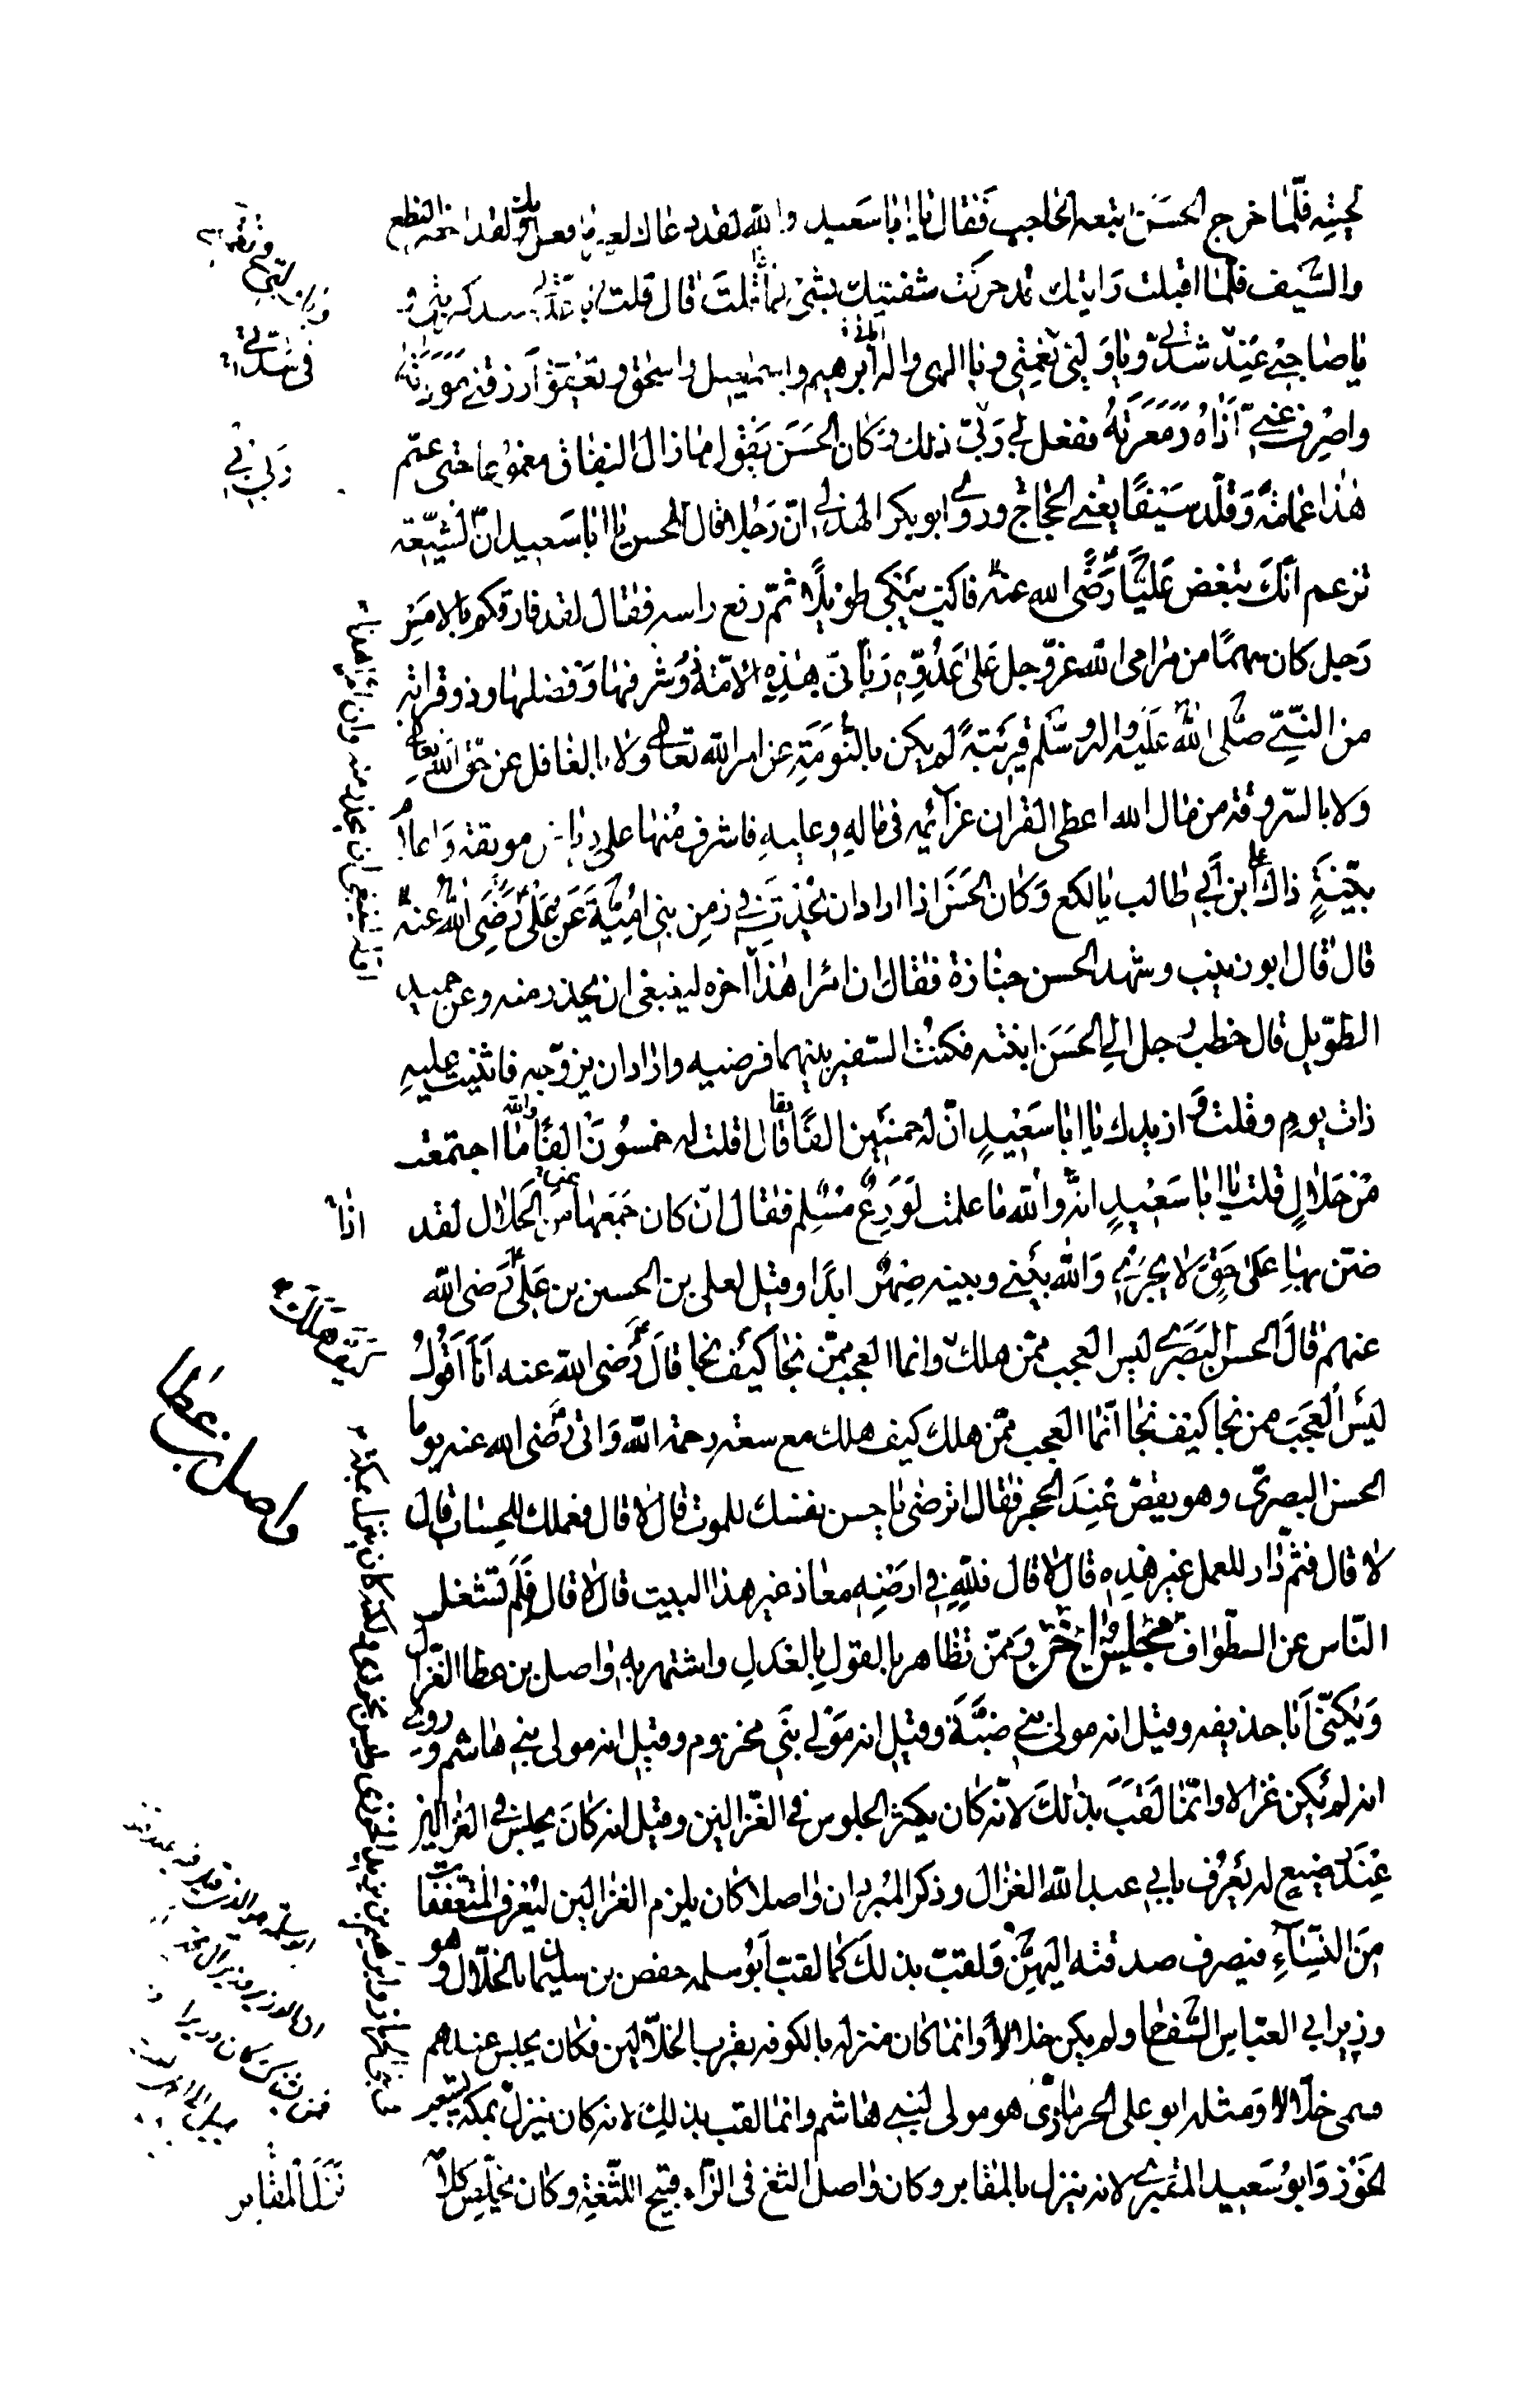 لحيته فلما خرج الحسن اتبعه الحاجب فقال يا ابا سعيد والله لقد دعاك لغير ما فعل بك ولقد احضر النطع
والسيف فلما اقبلت رايتك قد حركت شفتيك بشئ فما قلت قال قلت يا
يا صاحبي عند شدتي ويا وليي في نعمتي ويا الهي واله ابرهيم واسمعيل واسحق ويعقوب ارزقني مودته
واصرف عني اذاه ومعرته ففعل لي ربي ذلك وكان الحسن يقول ما زال النفاق مقموعا حتى عمم
هذا عمامة وقلد سيفا يعني الحجاج وروى ابو بكر الهذلي ان رجلا قال للحسن يا ابا سعيد ان الشيعة
تزعم انك تبغض عليا رضى الله عنه فاكب يبكي طويلا ثم رفع راسه فقال لقد فارقكم بالامس
رجل كان سهما من مرامى الله عز وجل على عدوه رباني هذه الامة وشرفها وفضلها وذو قرابة
من النبي صلى الله عليه واله وسلم قريبة لم يكن بالنومة عن امر الله تعالى ولا بالغافل عن حق الله تعالى
ولا بالسروقة من مال الله اعطى القران عزائمه فى ماله وعليه فاشرف منها على رياض مونقة واعلام
بينة ذاك على بن ابي طالب يا لكع وكان الحسن اذا اراد ان يحدث في زمن بني امية عن على رضى الله عنه
قال قال ابو زينب وشهد الحسن جنازة فقال ان امرا هذا اخره لينبغى ان يحذر منه وعن حميد
الطويل قال خطب رجل الى الحسن ابنته فكنت السفير بينهما فرضيه واراد ان يزوجه فاثنيت عليه
ذات يوم وقلت وازيدك يا ابا سعيد ان له خمسين الفا فقال اقلت له خمسون الفا والله ما اجتمعت
من حلال قلت يا ابا سعيد انه والله ما علمت لورع مسلم فقال ان كان جمعها من الحلال لقد
ضن بها على حق لا يجري والله بيني وبينه صهر ابدا وقيل لعلى بن الحسين بن على رضى الله
عنهم قال الحسن البصري ليس العجب ممن هلك وانما العجب ممن نجا كيف نجا قال رضى الله عنه انا اقول
ليس العجب ممن نجا كيف نجا انما العجب ممن هلك كيف هلك مع سعة رحمة الله واتى رضى الله عنه يوما
الحسن البصرى وهو يقص عند الحجر فقال اترضى يا حسن نفسك للموت قال لا قال فعملك للحساب قال
لا قال فثم دار للعمل غير هذه قال لا قال فلله في ارضه معاذ غير هذا البيت قال لا قال فلم تشغل
الناس عن الطواف مجلس اخر وممن تظاهر بالقول بالعدل واشتهر به واصل بن عطا الغزال
ويكنى ابا حذيفه وقيل انه مولى بني ضبة وقيل انه مولي بني مخزوم وقيل انه مولى بني هاشم وروى
انه لم يكن غزالا وانما لقب بذلك لانه كان يكثر الجلوس فى الغزالين وقيل انه كان يجلس فى الغزالين
عند رضيع له يعرف بابي عبد الله الغزال وذكر المبرد ان واصلا كان يلزم الغزالين ليعرف المتعففات
من النساء فيصرف صدقته اليهن ولقب بذلك كما لقب ابو سلمه حفص بن سليمان بالخلال وهو
وزير ابي العباس السفاح ولم يكن خلالا وانما كان منزله بالكوفه بقرب الخلالين فكان يجلس عندهم
فسمى خلالا ومثله ابو على الحرمازى هو مولى لبني هاشم وانما لقب بذلك لانه كان ينزل
وابو سعيد المقبري لانه نزل بالمقابر وكان واصل الثغ فى الراء قبيح اللثغة وكان يخلص كلامه
في شدتي
ربي
اذا
كيف هلك
واصل بن عطا
نزل المقابر